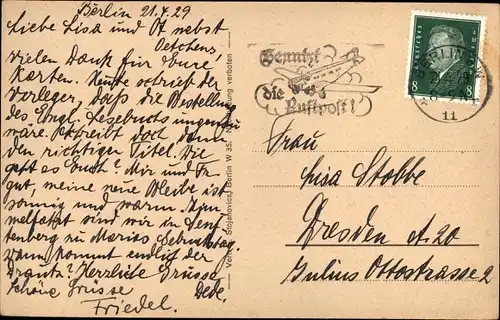 Berlin 21.4.29
Liebe Lisa und Ot nebst
Oetchens,
vielen Dank für Eure
Karten. Heute schrieb der
Verleger, daß die Bestellung
des Engl. Lesebuchs ungenau
wäre. Schreibt doch dann
den richtigen Titel. Wie
geht es Euch? Mir und Fr.
gut, meine neue Bleibe ist
sonnig und warm. Him-
melfahrt sind wir in Senf-
tenberg zu Marias Geburtstag.
Wann kommt endlich der
Herzliche Grüsse
Schöne Grüsse Dede.
Friedel.
Berlin W 35. Nachahmung verboten
Benutzt
die
Luftpost!
BERLIN
11
8 8
Frau
Lisa Stobbe
Dresden A. 20
Julius Ottostrasse 2